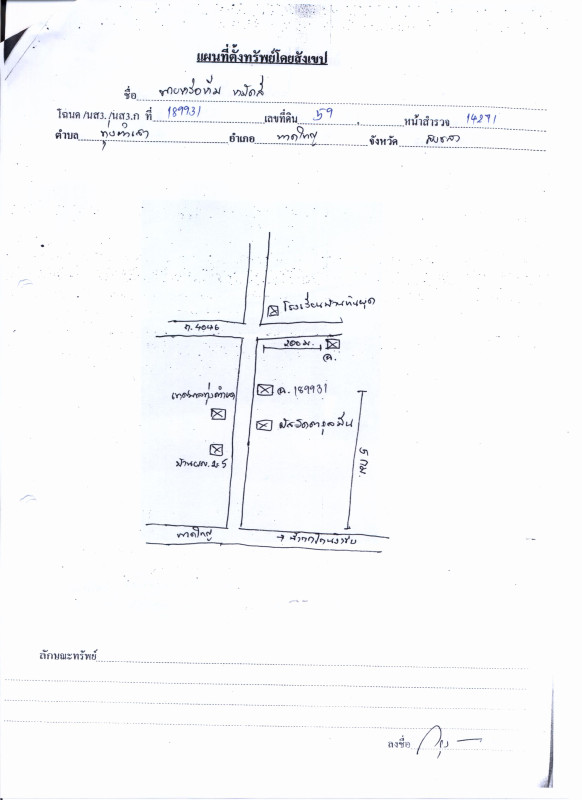 แผนที่ตั้งทรัพย์โดยสังเขป
ชื่อ นายหร่อหีม หมัดสี
โฉนด /นส3. /นส3.ก ที่ 189931 เลขที่ดิน 59 หน้าสำรวจ 14271
ตำบล ทุ่งตำเสา อำเภอ หาดใหญ่ จังหวัด สงขลา
โรงเรียนบ้านหินผุด
ถ. 4046
200 ม.
ฉ.
เทศบาลทุ่งตำเสา
ฉ. 189931
มัสยิด
5 กม.
บ้าน
หาดใหญ่
→
ลักษณะทรัพย์
ลงชื่อ